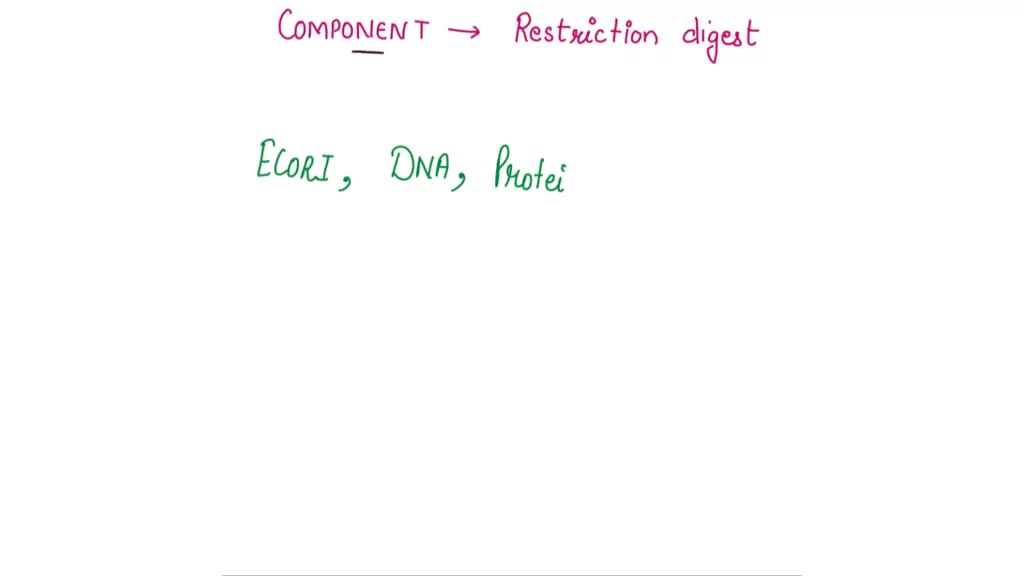 COMPONENT → Restriction digest
ECORI, DNA, Protei